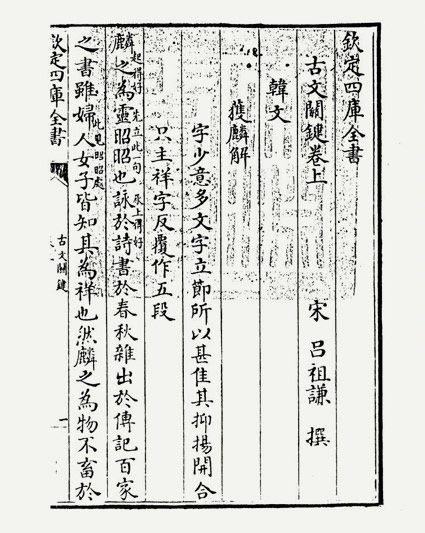 欽定四庫全書
古文關鍵卷上
宋 呂祖謙 撰
韓文
獲麟解
字少意多文字立節所以甚佳其抑揚開合
只主祥字反覆作五段
麟之為靈昭昭也詠於詩書於春秋雜出於傳記百家
起得好 先立此一句 承上得好
之書雖婦人女子皆知其為祥也然麟之為物不畜於
此見昭昭處
欽定四庫全書
古文關鍵
一